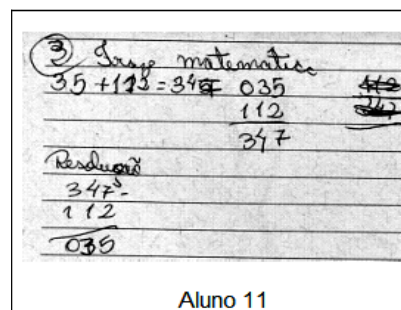 ③ Fraze matematica
35 + 112 = 347 035
112
347
Resolução
347-
112
035
Aluno 11